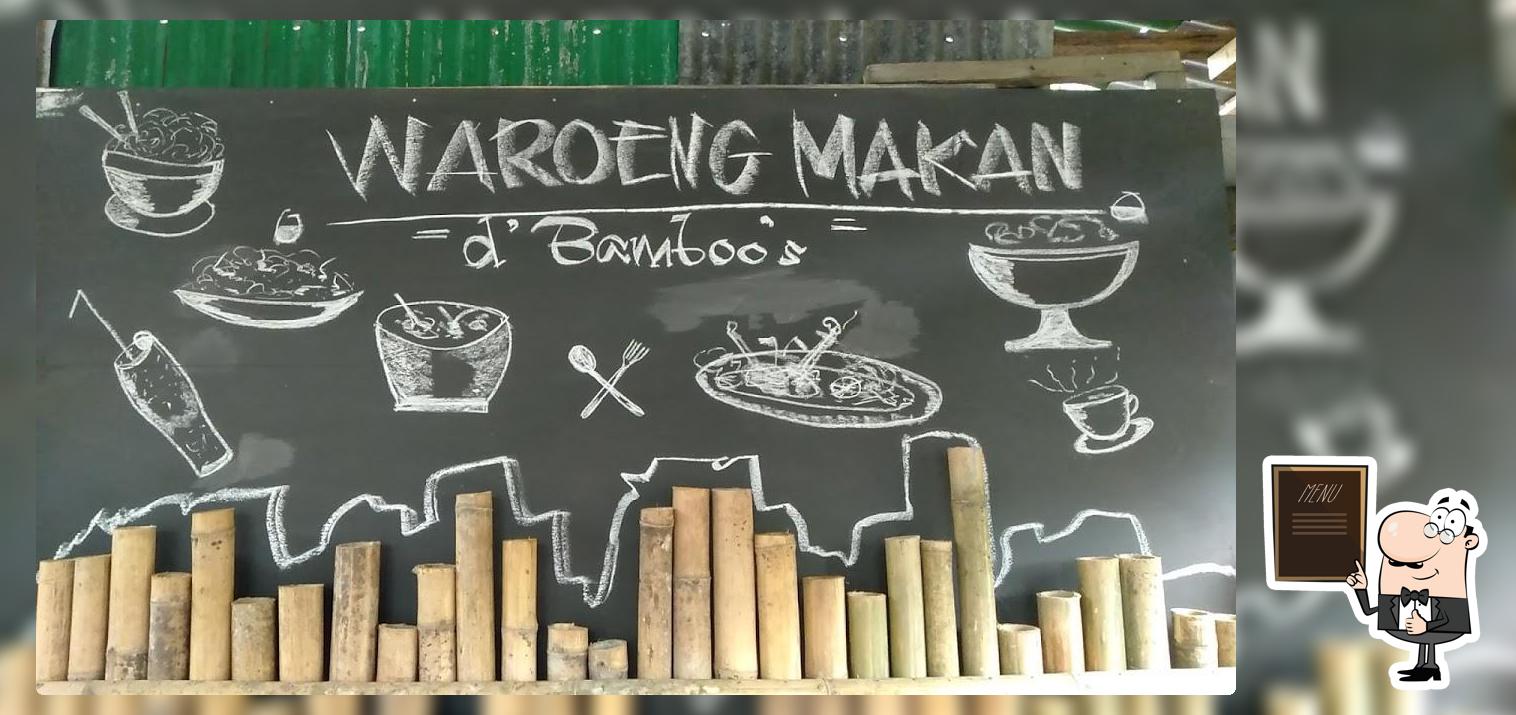 WAROENG MAKAN
= d'Bamboo's =
MENU